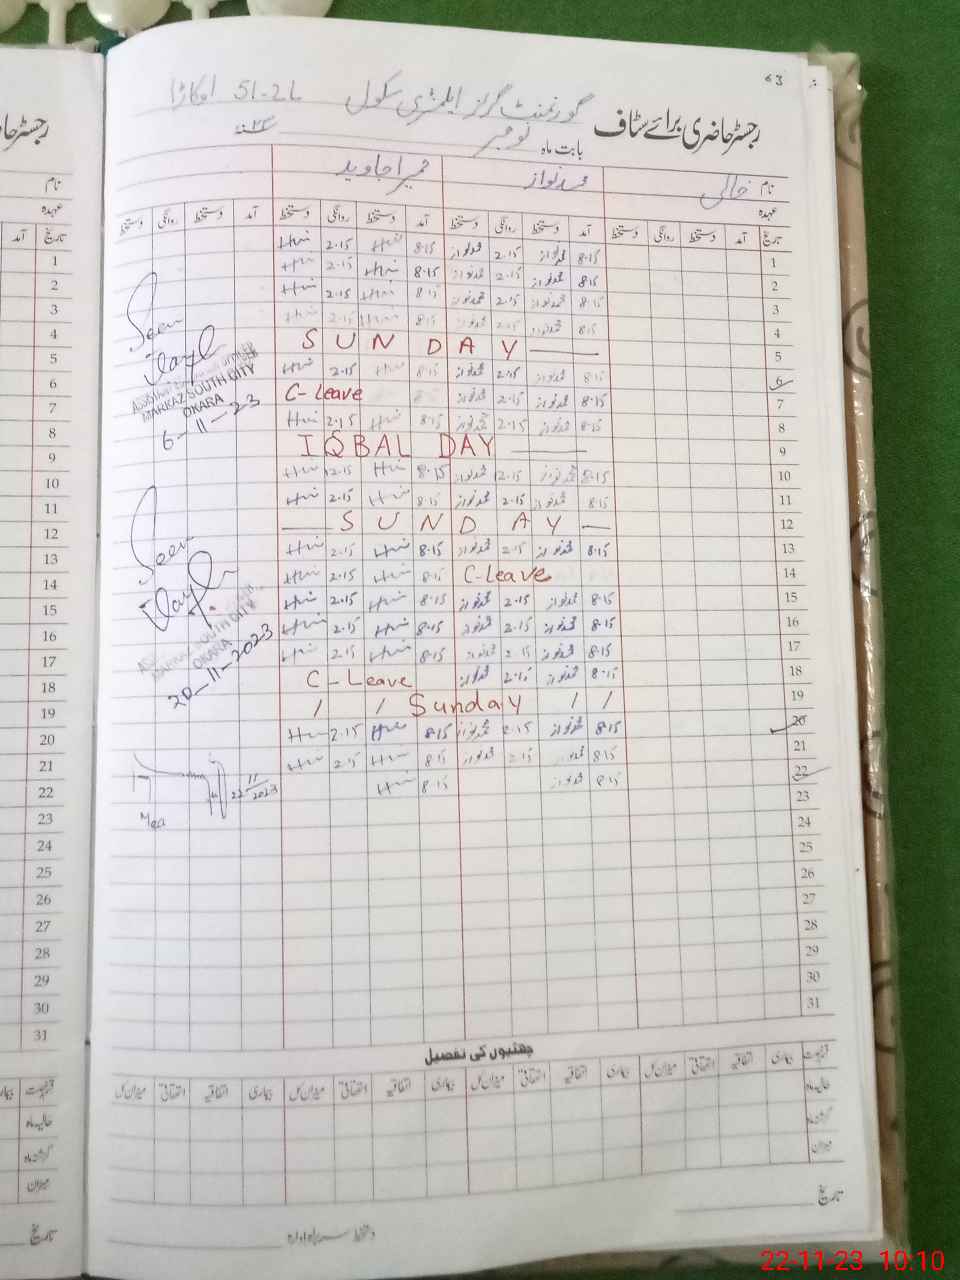 63
گورنمنٹ گرلز ایلمنٹری سکول 51-2L اوکاڑا
رجسٹر حاضری برائے سٹاف
بابت ماہ نومبر
نام خالی محمد نواز حمیرا جاوید
عہدہ
تاریخ آمد دستخط روانگی دستخط آمد دستخط روانگی دستخط آمد دستخط روانگی دستخط آمد دستخط روانگی دستخط
1 8-15 محمد نواز 2-15 محمد نواز 8-15 2.15
2 8-15 محمد نواز 2-15 محمد نواز 8-15 2-15
3 8-15 محمد نواز 2-15 محمد نواز 8-15 2.15
4 8-15 محمد نواز 2-15 محمد نواز 8-15 2.15
5 SUNDAY
6 8-15 محمد نواز 2-15 محمد نواز 8-15 2.15
7 8-15 محمد نواز 2-15 محمد نواز C-Leave
8 8-15 محمد نواز 2-15 محمد نواز 8-15 2.15
9 IQBAL DAY
10 8-15 محمد نواز 2-15 محمد نواز 8-15 2.15
11 8-15 محمد نواز 2-15 محمد نواز 8-15 2.15
12 SUNDAY
13 8-15 محمد نواز 2-15 محمد نواز 8-15 2.15
14 C-Leave 8-15 2.15
15 8-15 محمد نواز 2-15 محمد نواز 8-15 2.15
16 8-15 محمد نواز 2-15 محمد نواز 8-15 2.15
17 8-15 محمد نواز 2-15 محمد نواز 8-15 2.15
18 8-15 محمد نواز 2-15 محمد نواز C-Leave
19 / / Sunday / /
20 8-15 محمد نواز 2-15 محمد نواز 8-15 2.15
21 8-15 محمد نواز 2-15 محمد نواز 8-15 2.15
22 8-15 محمد نواز 8-15
23
24
25
26
27
28
29
30
31
Seen
MARKAZ SOUTH CITY
OKARA
6-11-23
Seen
SOUTH CITY
OKARA
20-11-2023
22/11/2023
Mea
چھٹیوں کی تفصیل
بیماری اتفاقیہ استحقاقی میزان کل بیماری اتفاقیہ استحقاقی میزان کل بیماری اتفاقیہ استحقاقی میزان کل بیماری اتفاقیہ استحقاقی میزان کل
حالیہ ماہ
گزشتہ ماہ
میزان
تاریخ
دستخط سربراہ ادارہ
نام
عہدہ
تاریخ آمد
1
2
3
4
5
6
7
8
9
10
11
12
13
14
15
16
17
18
19
20
21
22
23
24
25
26
27
28
29
30
31
حالیہ ماہ
گزشتہ ماہ
میزان
تاریخ
22-11-23 10:10